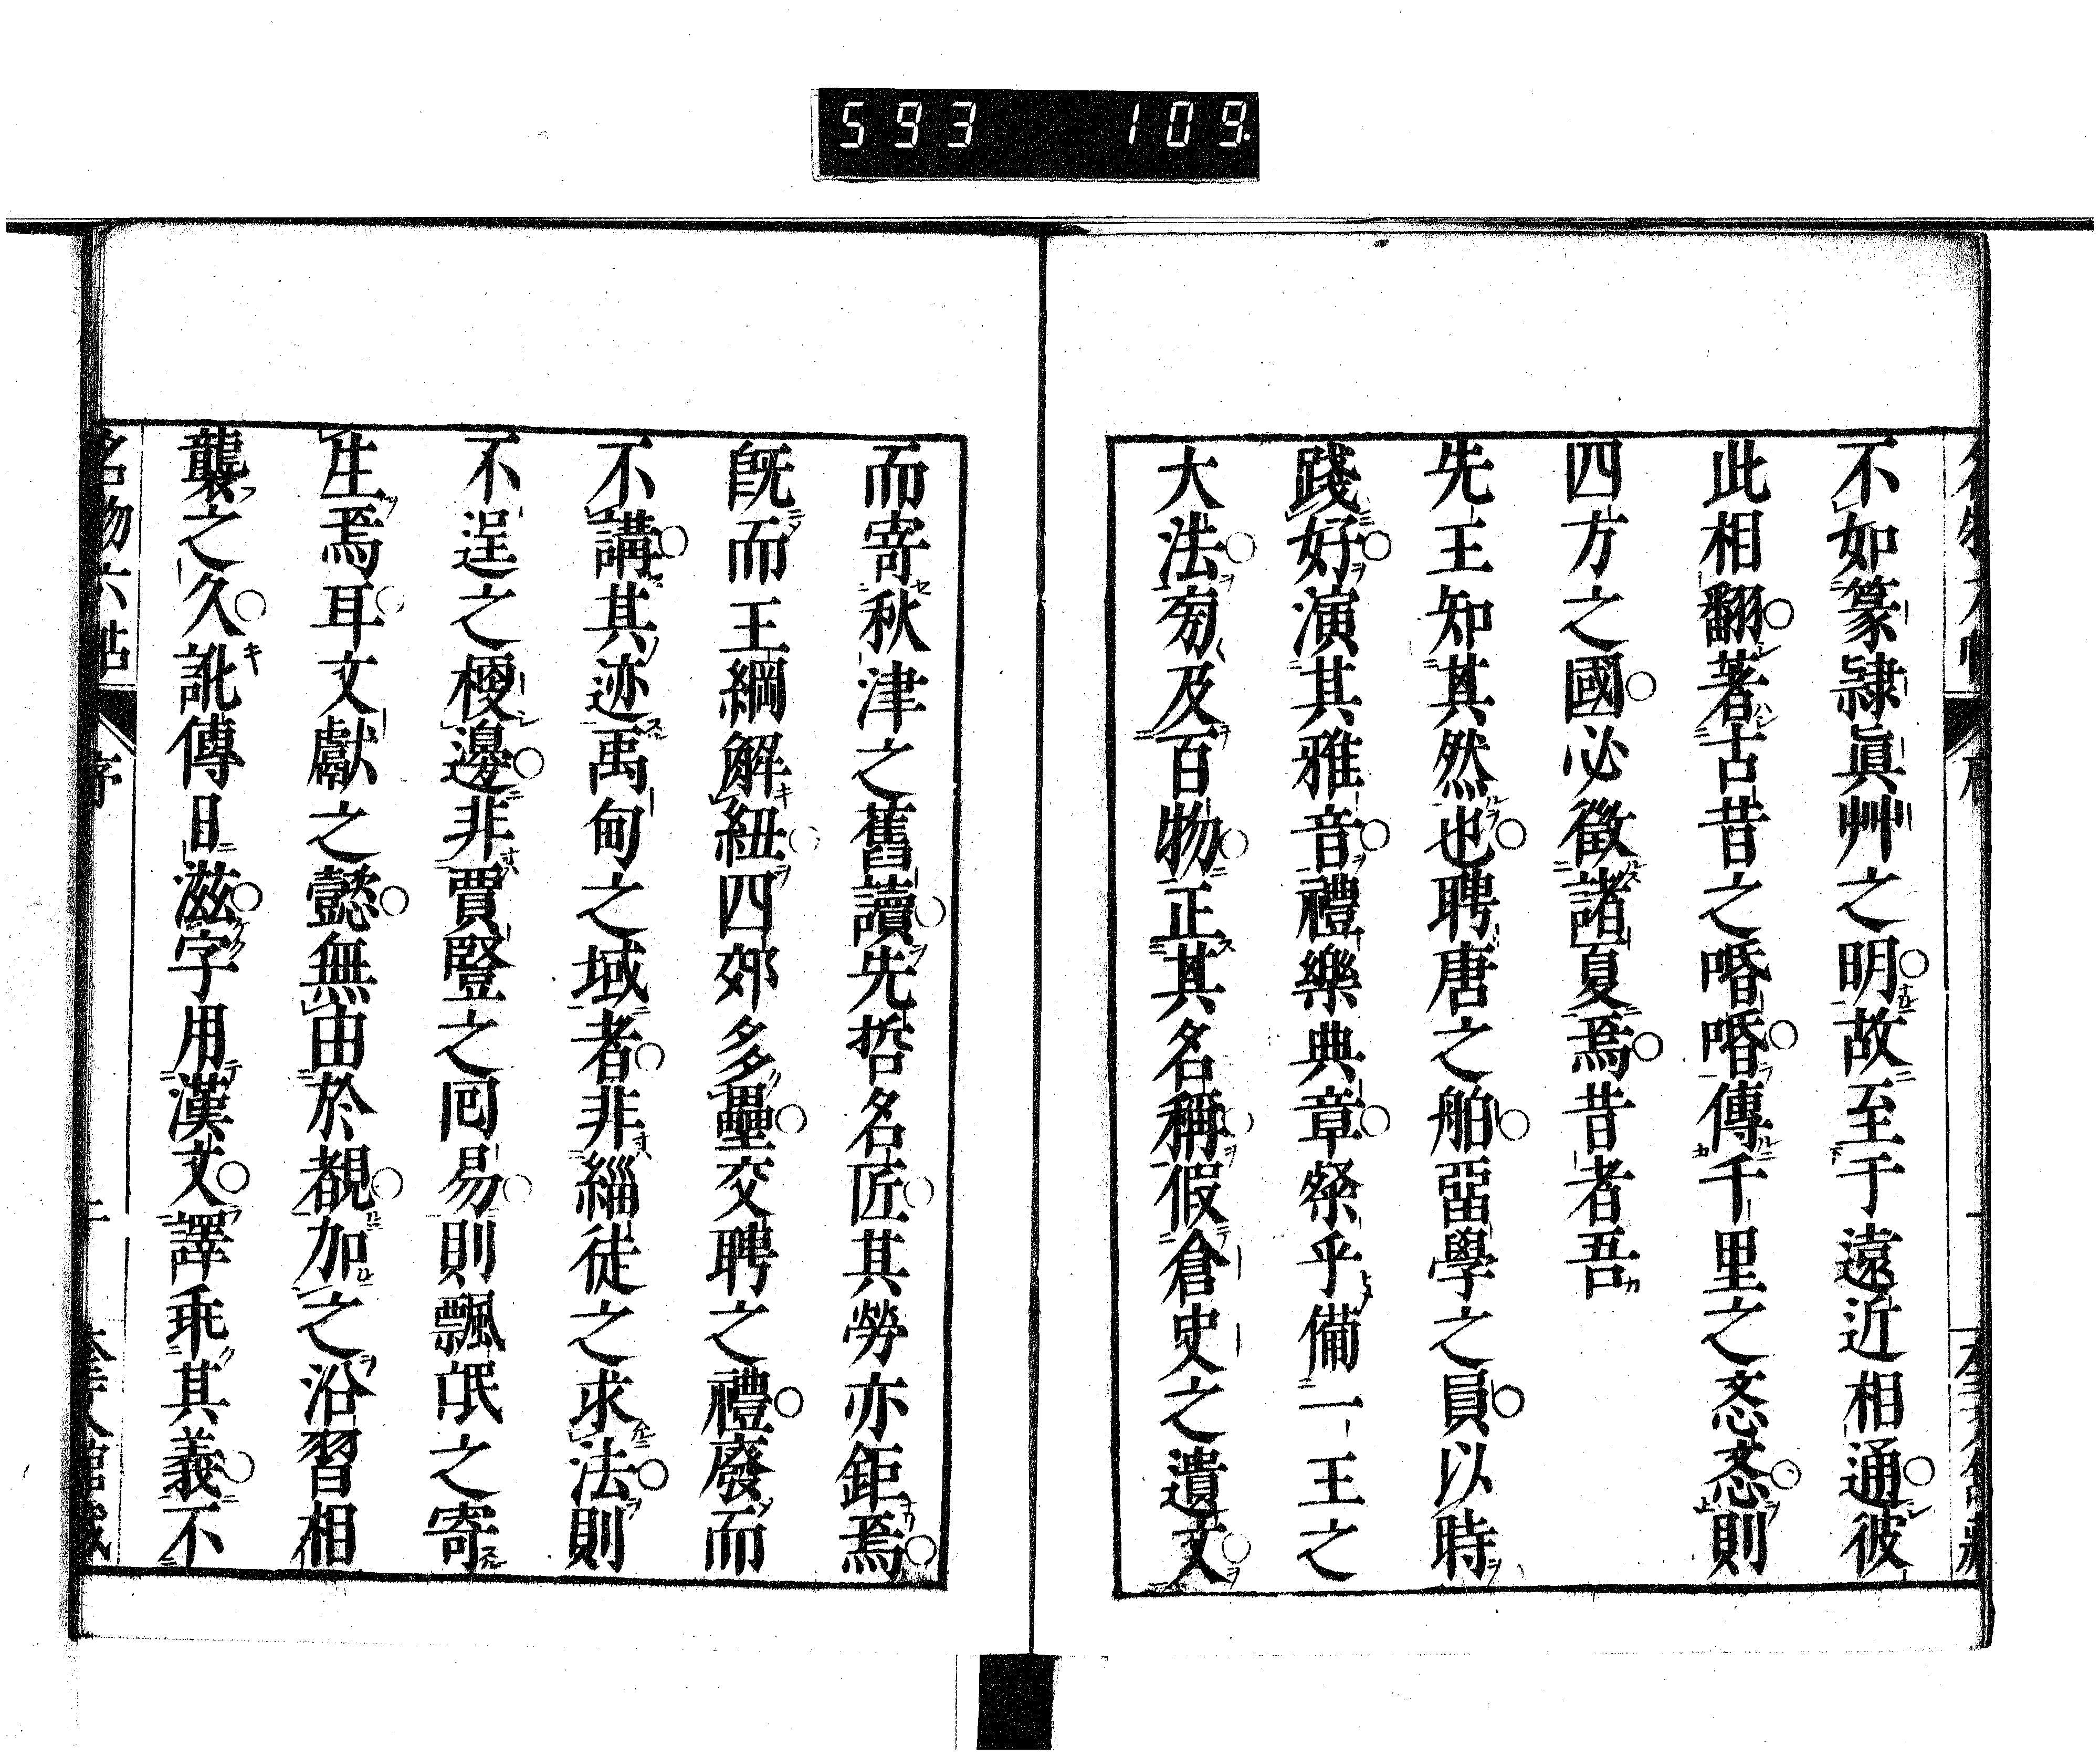 593 109
不如篆隷眞艸之明故至于遠近相通彼
此相翻著古昔之㖧㖧傳千里之忞忞則
四方之國必徵諸夏焉昔者吾
先王知其然也聘唐之舶畱學之員以時
踐好演其雅音禮樂典章粲乎備一王之
大法匇及百物正其名稱假倉史之遺文
而寄秋津之舊讀先哲名匠其勞亦鉅焉
旣而王綱解紐四郊多壘交聘之禮廢而
不講其迹禹甸之域者非緇徒之求法則
不逞之梗邊非賈豎之回易則飄氓之寄
生焉耳文獻之懿無由於覩加之沿習相
襲之久訛傳日滋字用漢文譯乖其義不
名物六帖
序